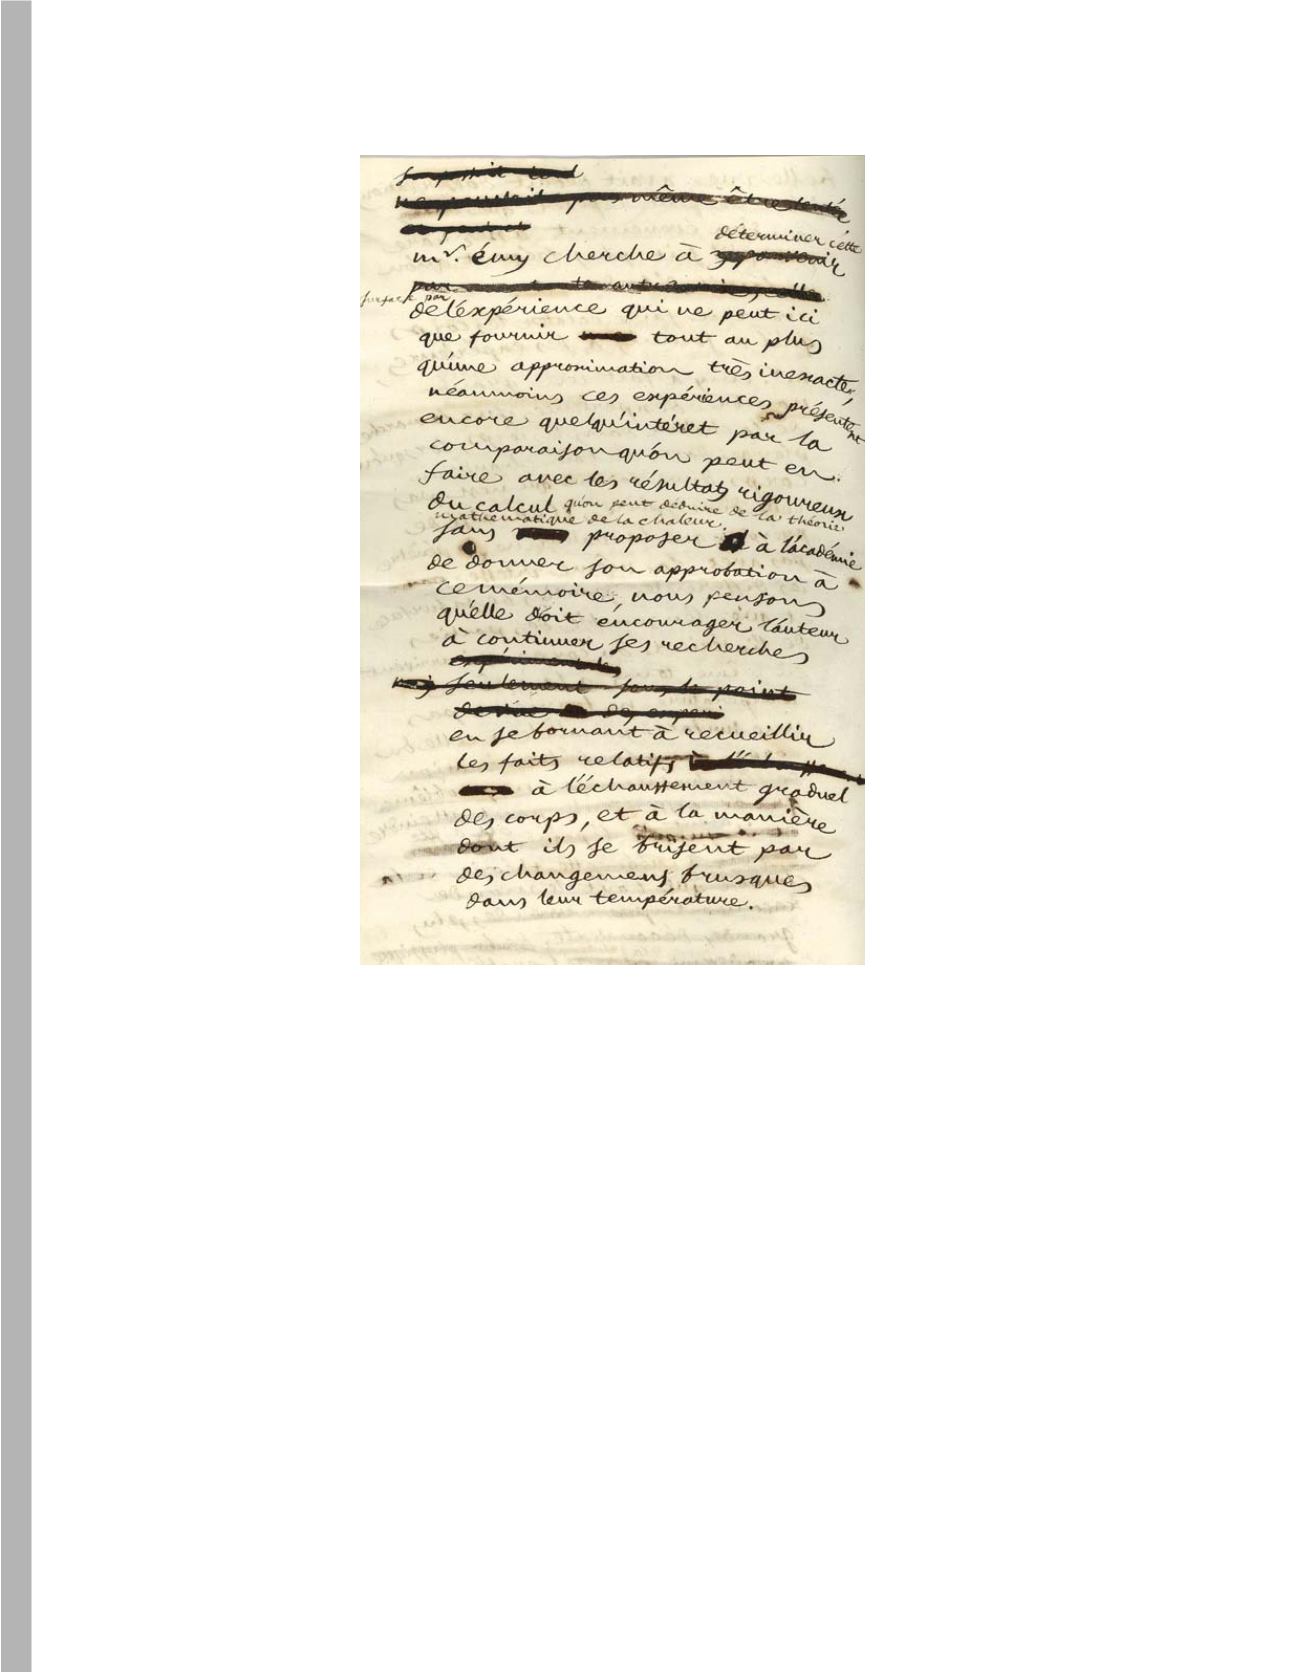 pas même être tenté
déterminer cette
mr. émy cherche à
surface par
de l'éxpérience qui ne peut ici
que fournir tout au plus
qu'une approximation très inexacte,
néanmoins ces expériences présentent
encore quelqu'intéret par la
comparaison qu'on peut en
faire avec les résultats rigoureux
du calcul qu'on peut déduire de la théorie
mathématique de la chaleur.
sans proposer à l'académie
de donner son approbation à
ce mémoire, nous pensons
qu'elle doit encourager l'auteur
à continuer ses recherches
expérimentales
seulement sous le point
de vue des experi
en se bornant à recueillir
les faits relatifs
à l'échauffement graduel
des corps, et à la manière
dont ils se brisent par
des changemens brusques
dans leur température.